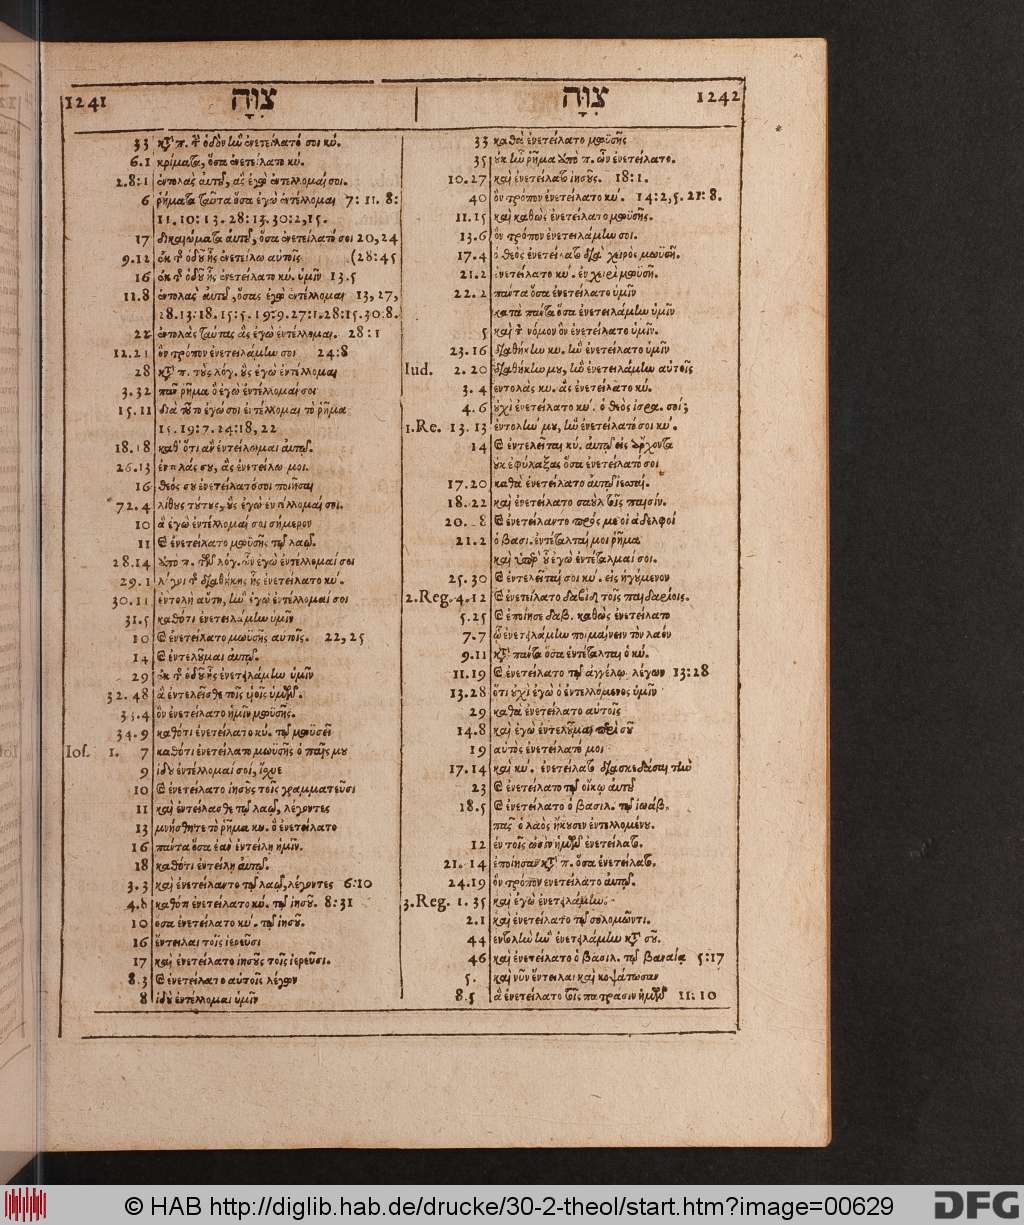 1241 צִוָּה
33 κτ̄ π. τ̄ ὁδὸν ἣν ἐνετείλατό σοι κύ.
6.1 κρίματα, ὅσα ἐνετείλατο κύ.
2.8:1 ἐντολὰς αὐτοῦ, ἃς ἐγὼ ἐντέλλομαί σοι.
6 ῥήματα ταῦτα ὅσα ἐγὼ ἐντέλλομαι 7: 11. 8:
11.10: 13. 28: 13. 30: 2, 15.
17 δικαιώματα αὐτοῦ, ὅσα ἐνετείλατό σοι 20, 24
9.12 ἐκ τ̄ ὁδοῦ ἧς ἐνετείλω αὐτοῖς (28:45
16 ἐκ τ̄ ὁδοῦ ἧς ἐνετείλατο κύ. ὑμῖν 13.5
11.8 ἐντολὰς αὐτοῦ, ὅσας ἐγὼ ἐντέλλομαι 13, 27,
28.13:18. 15:5. 19:9. 27:1. 28:15. 30:8.
22 ἐντολὰς ταύτας ἃς ἐγὼ ἐντέλλομαι. 28:1
12.21 ὃν τρόπον ἐνετειλάμην σοι 24:8
28 κτ̄ π. τοὺς λόγ. οὓς ἐγὼ ἐντέλλομαι
3.32 πᾶν ῥῆμα ὃ ἐγὼ ἐντέλλομαί σοι
15.11 διὰ τοῦτο ἐγώ σοι ἐντέλλομαι τὸ ῥῆμα
15. 19:7. 24:18, 22
18.18 καθ' ὅτι ἂν ἐντείλωμαι αὐτῷ.
26.13 ἐντολάς σου, ἃς ἐνετείλω μοι.
16 θεός σου ἐνετείλατό σοι ποιῆσαι
72.4 λίθους τούτους, οὓς ἐγὼ ἐντέλλομαί σοι.
10 ἃ ἐγὼ ἐντέλλομαί σοι σήμερον
11 Ϗ ἐνετείλατο μωϋσῆς τῷ λαῷ.
28.14 ἀπὸ π. τῶν λόγ. ὧν ἐγὼ ἐντέλλομαί σοι
29.1 λόγοι τ̄ διαθήκης ἧς ἐνετείλατο κύ.
30.11 ἐντολὴ αὕτη, ἣν ἐγὼ ἐντέλλομαί σοι
31.5 καθότι ἐνετειλάμην ὑμῖν
10 Ϗ ἐνετείλατο μωϋσῆς αὐτοῖς. 22, 25
14 Ϗ ἐντελοῦμαι αὐτῷ.
29 ἐκ τ̄ ὁδοῦ ἧς ἐνετειλάμην ὑμῖν
32.48 ἃ ἐντελεῖσθε τοῖς υἱοῖς ὑμῶν.
33.4 ὃν ἐνετείλατο ἡμῖν μωϋσῆς.
34.9 καθότι ἐνετείλατο κύ. τῷ μωϋσεῖ
Ios. 1. 7 καθότι ἐνετείλατο μωϋσῆς ὁ παῖς μου
9 ἰδοὺ ἐντέλλομαί σοι, ἴσχυε
10 Ϗ ἐνετείλατο ἰησοῦς τοῖς γραμματεῦσι
11 καὶ ἐντείλασθε τῷ λαῷ, λέγοντες
13 μνήσθητε τὸ ῥῆμα κυ. ὃ ἐνετείλατο
16 πάντα ὅσα ἐὰν ἐντείλῃ ἡμῖν.
18 καθότι ἐντείλῃ αὐτῷ.
3.3 καὶ ἐνετείλαντο τῷ λαῷ, λέγοντες 6:10
4.8 καθότι ἐνετείλατο κύ. τῷ ἰησοῦ. 8:31
10 ὅσα ἐνετείλατο κύ. τῷ ἰησοῦ.
16 ἔντειλαι τοῖς ἱερεῦσι
17 καὶ ἐνετείλατο ἰησοῦς τοῖς ἱερεῦσι.
8.3 Ϗ ἐνετείλατο αὐτοῖς λέγων
8 ἰδοὺ ἐντέλλομαι ὑμῖν
צִוָּה 1242
33 καθὰ ἐνετείλατο μωϋσῆς
35 οὐκ ἦν ῥῆμα ἀπὸ π. ὧν ἐνετείλατο.
10.27 καὶ ἐνετείλατο ἰησοῦς. 18:1.
40 ὃν τρόπον ἐνετείλατο κύ. 14:2, 5. 21:8.
11.15 καὶ καθὼς ἐνετείλατο μωϋσῆς.
13.6 ὃν τρόπον ἐνετειλάμην σοι.
17.4 ὁ θεὸς ἐνετείλατο διὰ χειρὸς μωϋσῆ.
21.2 ἐνετείλατο κύ. ἐν χειρὶ μωϋσῆ.
22.2 πάντα ὅσα ἐνετείλατο ὑμῖν
κατὰ πάντα ὅσα ἐνετειλάμην ὑμῖν
5 καὶ τ̄ νόμον ὃν ἐνετείλατο ὑμῖν.
23.16 διαθήκην κυ. ἣν ἐνετείλατο ὑμῖν
Iud. 2.20 διαθήκην μου, ἣν ἐνετειλάμην αὐτοῖς
3.4 ἐντολὰς κυ. ἃς ἐνετείλατο κύ.
4.6 οὐχὶ ἐνετείλατο κύ. ὁ θεὸς ἰσρα. σοί;
1.Re. 13.13 ἐντολήν μου, ἣν ἐνετείλατό σοι κύ.
14 Ϗ ἐντελεῖται κύ. αὐτῷ εἰς ἄρχοντα
οὐκ ἐφύλαξας ὅσα ἐνετείλατό σοι
17.20 καθὰ ἐνετείλατο αὐτῷ ἰεσσαί.
18.22 καὶ ἐνετείλατο σαοὺλ τοῖς παισίν.
20. 8 Ϗ ἐνετείλαντο πρός με οἱ ἀδελφοί
21.2 ὁ βασι. ἐντέταλταί μοι ῥῆμα
καὶ ὑπὲρ οὗ ἐγὼ ἐντέταλμαί σοι.
25.30 Ϗ ἐντελεῖταί σοι κύ. εἰς ἡγούμενον
2.Reg. 4.12 Ϗ ἐνετείλατο δαβὶδ τοῖς παιδαρίοις.
5.25 Ϗ ἐποίησε δαβ. καθὼς ἐνετείλατο
7.7 ᾧ ἐνετειλάμην ποιμαίνειν τὸν λαόν
9.11 κτ̄ πάντα ὅσα ἐντέταλται ὁ κύ.
11.19 Ϗ ἐνετείλατο τῷ ἀγγέλῳ λέγων 13:28
13.28 ὅτι οὐχὶ ἐγὼ ὁ ἐντελλόμενος ὑμῖν
29 καθὰ ἐνετείλατο αὐτοῖς
14.8 καὶ ἐγὼ ἐντελοῦμαι περὶ σοῦ
19 αὐτὸς ἐνετείλατό μοι
17.14 καὶ κύ. ἐνετείλατο διασκεδάσαι τὴν
23 Ϗ ἐνετείλατο τῷ οἴκῳ αὐτοῦ
18.5 Ϗ ἐνετείλατο ὁ βασιλ. τῷ ἰωάβ.
πᾶς ὁ λαὸς ἤκουσεν ἐντελλομένου.
12 ἐν τοῖς ὠσὶν ἡμῶν ἐνετείλατο.
21. 14 ἐποίησαν κτ̄ π. ὅσα ἐνετείλατο.
24.19 ὃν τρόπον ἐνετείλατο αὐτῷ.
3.Reg. 1.35 καὶ ἐγὼ ἐνετειλάμην.
2.1 καὶ ἐνετείλατο τῷ σολομῶντι.
44 ἐντολὴν ἣν ἐνετειλάμην κτ̄ σοῦ.
46 καὶ ἐνετείλατο ὁ βασιλ. τῷ βαναίᾳ 5:17
5. καὶ νῦν ἔντειλαι καὶ κοψάτωσαν
8.5 ἃ ἐνετείλατο τοῖς πατράσιν ἡμῶν 11:10
© HAB http://diglib.hab.de/drucke/30-2-theol/start.htm?image=00629
DFG